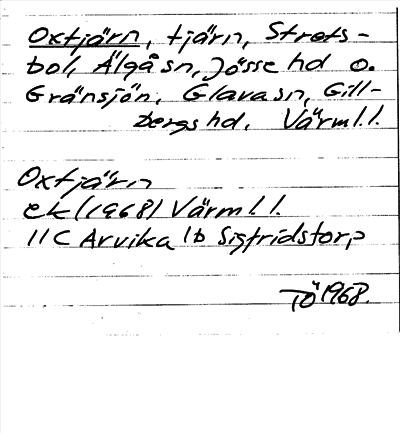 Oxtjärn, tjärn, Strets-
bol, Älgå sn, Jösse hd o.
Gränsjön, Glava sn, Gill-
bergs hd, Värml.l.
Oxtjärn
ek (1968) Värml.l.
11C Arvika 1b Sigfridstorp
TÖ 1968.